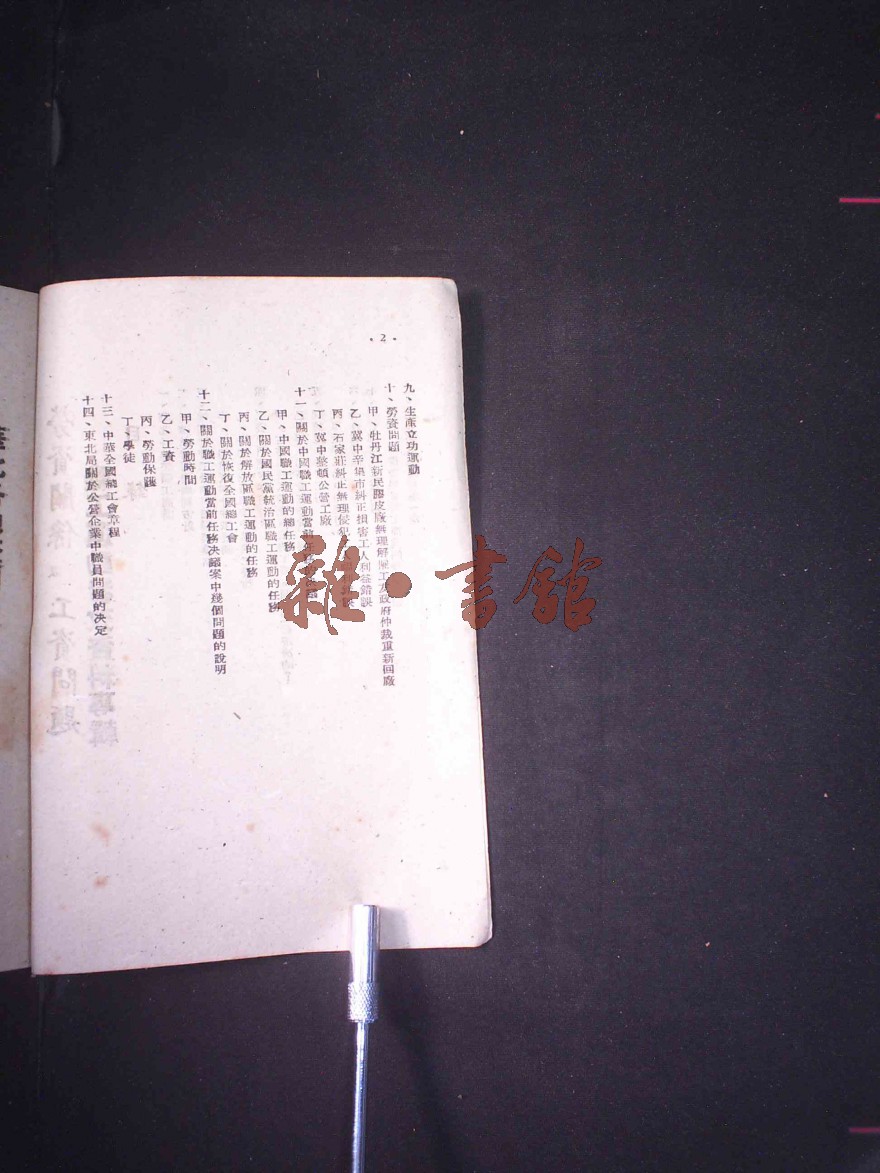 ·2·
九、生產立功運動
十、勞資問題
甲、牡丹江新民膠皮廠無理解工友政府仲裁重新回廠
乙、冀中辛集市糾正損害工人利益錯誤
丙、石家莊糾正無理侵犯
丁、冀中整頓公營工廠
十一、關於中國職工運動當前任務
甲、中國職工運動的總任務
乙、關於國民黨統治區職工運動的任務
丙、關於解放區職工運動的任務
丁、關於恢復全國總工會
十二、關於職工運動當前任務決議案中幾個問題的說明
甲、勞動時間
乙、工資
丙、勞動保護
丁、學徒
十三、中華全國總工會章程
十四、東北局關於公營企業中職員問題的決定
雜·書館